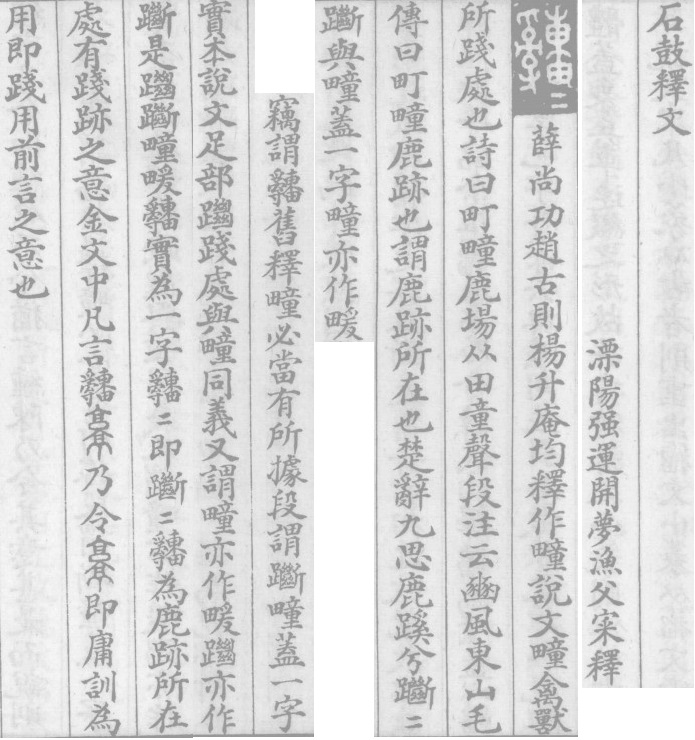 石鼓釋文
溧陽强運開夢漁父寀釋
薛尚功趙古則楊升庵均釋作疃說文疃禽獸
所踐處也詩曰町疃鹿場从田童聲段注云豳風東山毛
傳曰町疃鹿跡也謂鹿跡所在也楚辭九思鹿蹊兮躖=
躖與疃蓋一字疃亦作畽
竊謂舊釋疃必當有所據段謂躖疃蓋一字
實本說文足部躖踐處與疃同義又謂疃亦作畽躖亦作
躖是躖疃畽實為一字=即躖=為鹿跡所在
處有踐跡之意金文中凡言乃令即庸訓為
用即踐用前言之意也